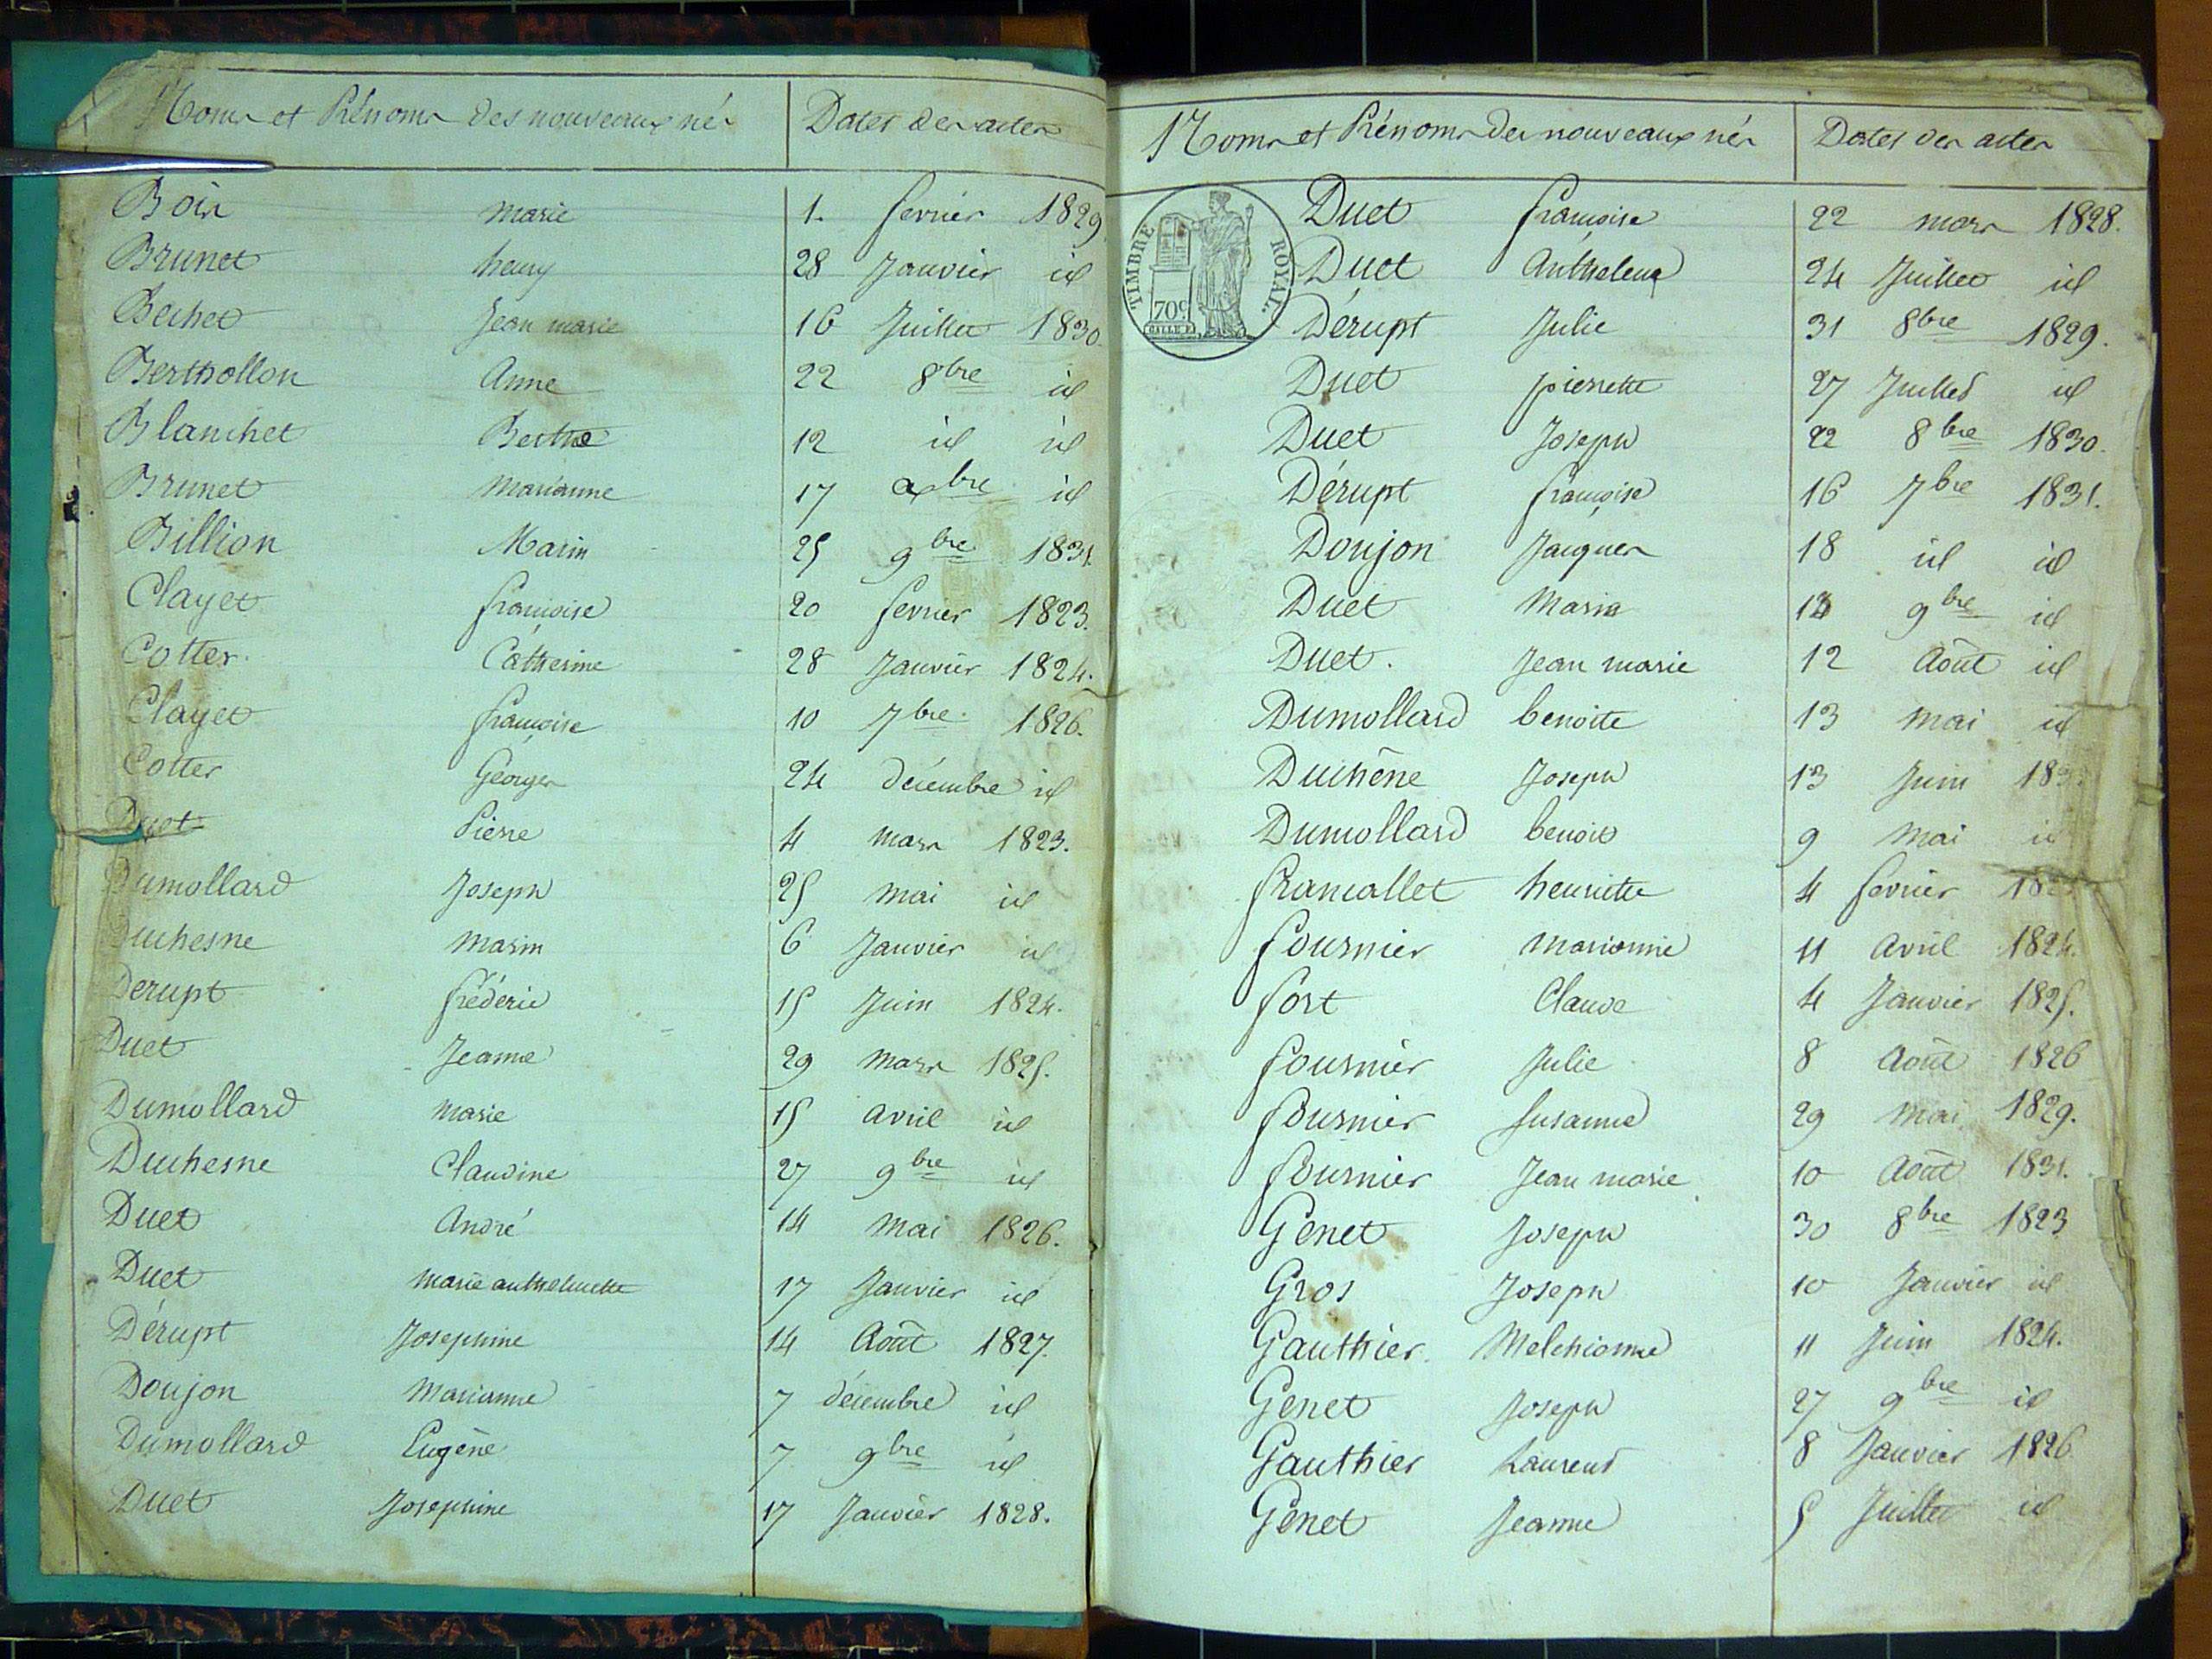 Noms et Prénoms des nouveaux nés Dates des actes
Bois marie 1. fevrier 1829
Brunet henry 28 Janvier id
Bechet Jean marie 16 Juillet 1830
Berthollon Anne 22 8bre id
Blanchet Berthe 12 id id
Brunet Marianne 17 xbre id
Billion Marin 25 9bre 1831.
Clayet françoise 20 fevrier 1823.
Cotter. Catherine 28 Janvier 1824.
Clayet françoise 10 7bre. 1826.
Cotter Georges 24 décembre id
Duet Pierre 4 mars 1823.
Dumollard Joseph 25 mai id
Duchesne marin 6 Janvier id
Derupt fréderic 15 Juin 1824.
Duet Jeanne 29 mars 1825.
Dumollard marie 15 avril id
Duchesne Claudine 27 9bre id
Duet André 14 mai 1826.
Duet marie anthelmette 17 Janvier id
Dérupt Josephine 14 Août 1827.
Doujon Marianne 7 décembre id
Dumollard Eugène 7 9bre id
Duet Josephine 17 Janvier 1828.
Noms et Prénoms des nouveaux nés Dates des actes
TIMBRE ROYAL
70c
Duet françoise 22 mars 1828.
Duet Anthelme 24 Juillet id
Dérupt Julie 31 8bre 1829.
Duet pierrette 27 Juillet id
Duet Joseph 22 8bre 1830.
Dérupt françoise 16 7bre 1831.
Doujon Jacques 18 id id
Duet 9bre id
Duet. Jean marie 12 Août id
Dumollard benoite 13 mai id
Duchêne Joseph 13 Juin
Dumollard benoit 9 mai id
francallet henriette 4 fevrier
fournier marianne 11 Avril 1824.
fort Claude 4 Janvier 1825.
fournier Julie 8 Août 1826
fournier Susanne 29 Mai 1829.
fournier Jean marie 10 Août 1831.
Genet Joseph 30 8bre 1823
Gros Joseph 10 Janvier id
Gauthier. Melchionne 11 Juin 1824.
Genet Joseph 27 9bre id
Gauthier Laurent 8 Janvier 1826
Genet Jeanne 5 Juillet id